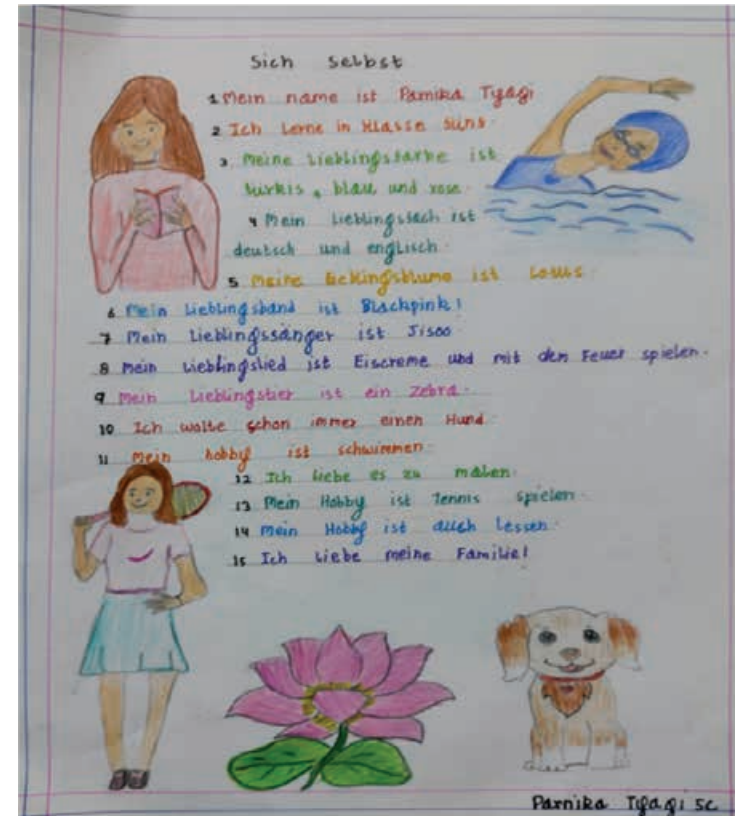 Sich selbst
1 Mein name ist Parnika Tyagi
2 Ich Lerne in Klasse süns.
3 Meine Lieblingsfarbe ist
türkis, blau und rose.
4 Mein Lieblingsfach ist
deutsch und englisch.
5 Meine lieblingsblume ist Lotus.
6 Mein Lieblingsband ist Blackpink!
7 Mein Lieblingssänger ist Jisoo
8 Mein Lieblingslied ist Eiscreme und mit dem Feuer spielen.
9 Mein Lieblingstier ist ein Zebra.
10 Ich wolte schon immer einen Hund.
11 Mein hobby ist schwimmen.
12 Ich liebe es zu malen.
13 Mein Hobby ist Tennis spielen.
14 Mein Hobby ist auch Lessen.
15 Ich liebe meine Familie!
Parnika Tyagi 5C